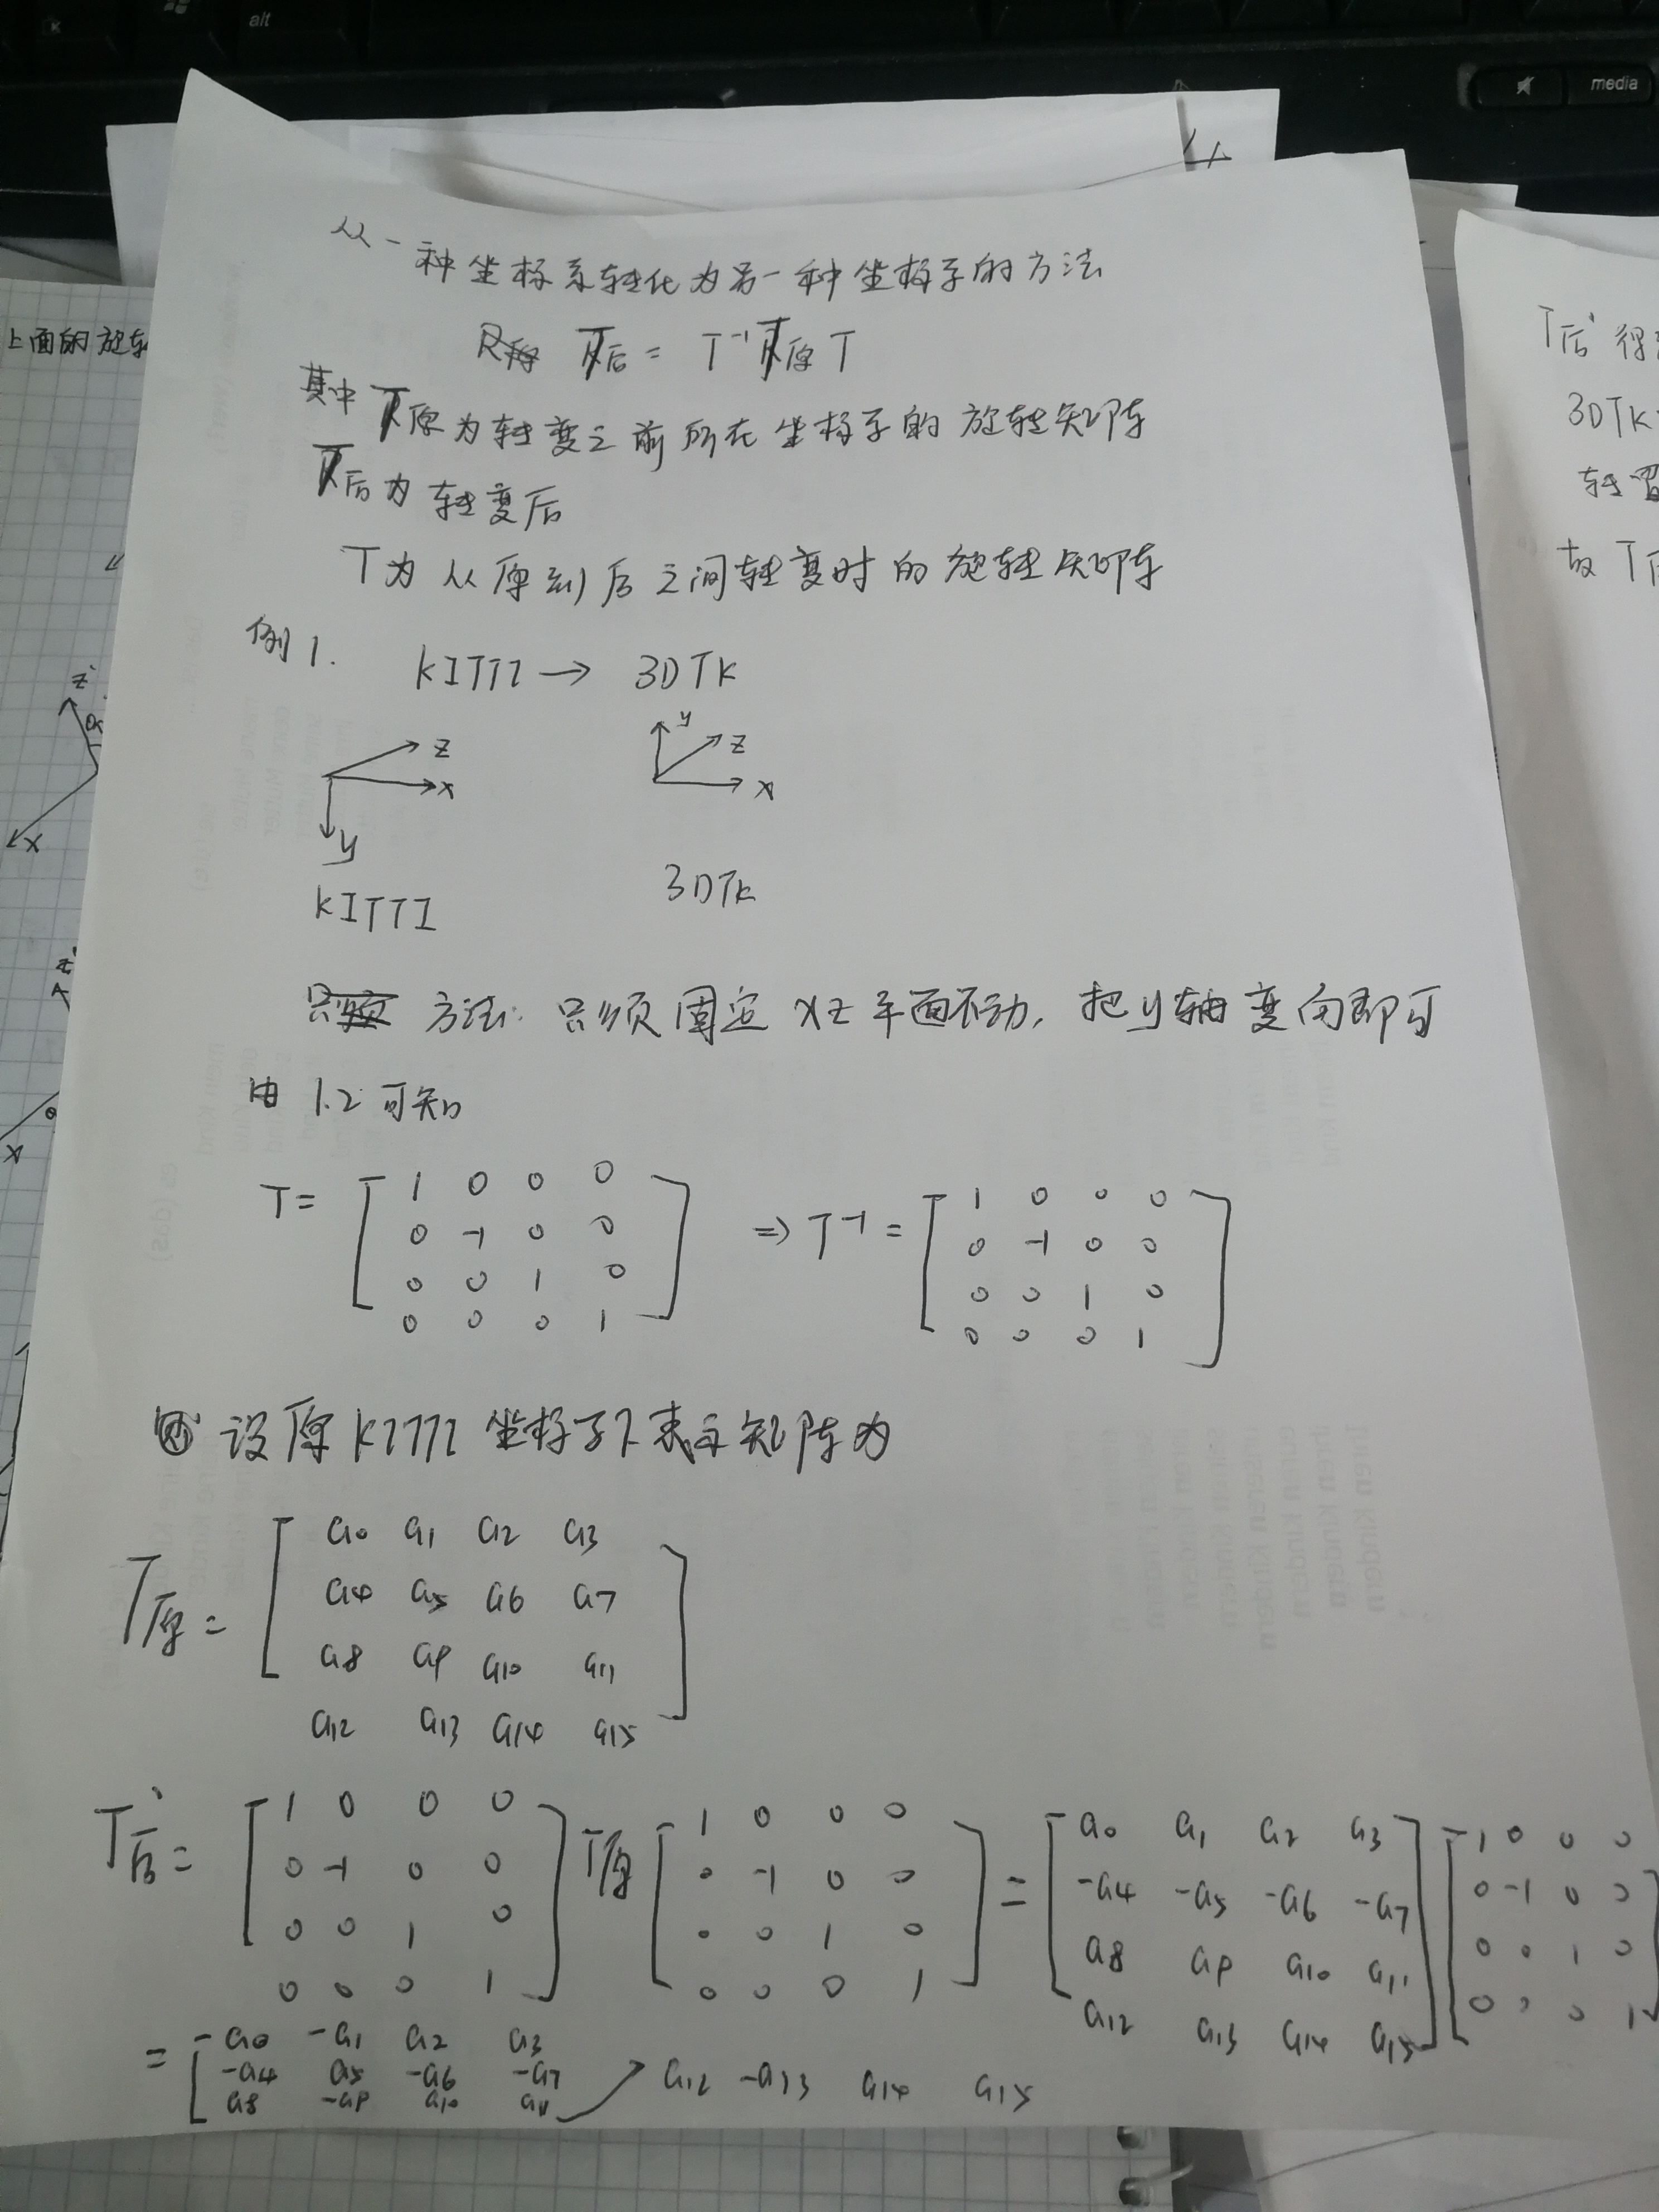 alt
K
media
从一种坐标系转化为另一种坐标系的方法
T后 = T⁻¹ T原 T
其中 T原为转变之前所在坐标系的旋转矩阵
T后为转变后
T为从原到后之间转变时的旋转矩阵
例1. KITTI → 3DTK
z x y
y z x
KITTI
3DTK
方法: 只须固定 xz 平面不动, 把y轴变向即可
由 1.2 可知
T = [1 0 0 0
0 -1 0 0
0 0 1 0
0 0 0 1]
⇒ T⁻¹ = [1 0 0 0
0 -1 0 0
0 0 1 0
0 0 0 1]
设原KITTI坐标系下表示矩阵为
T原 = [a0 a1 a2 a3
a4 a5 a6 a7
a8 a9 a10 a11
a12 a13 a14 a15]
T后' = [1 0 0 0
0 -1 0 0
0 0 1 0
0 0 0 1]
T原 [1 0 0 0
0 -1 0 0
0 0 1 0
0 0 0 1]
= [a0 a1 a2 a3
-a4 -a5 -a6 -a7
a8 a9 a10 a11
a12 a13 a14 a15]
[1 0 0 0
0 -1 0 0
0 0 1 0
0 0 0 1]
= [a0 -a1 a2 a3
-a4 a5 -a6 -a7
a8 -a9 a10 a11
a12 -a13 a14 a15
上面的旋转
z'
x
z'
θ
x
T后' 得
3DTK
故 T